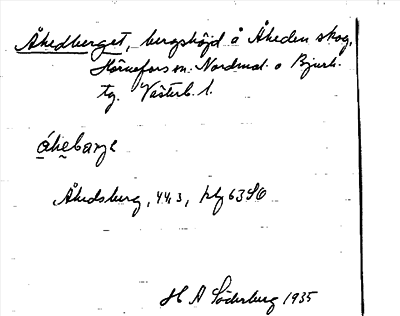 Åhedberget, bergshöjd å Åheden skog,
Hörnefors sn. Nordmal. o Bjurh.
tg. Västerb. l.
åhebarje
Åhedsberg, 44, 3, plg 63 SO
H A Söderberg 1935